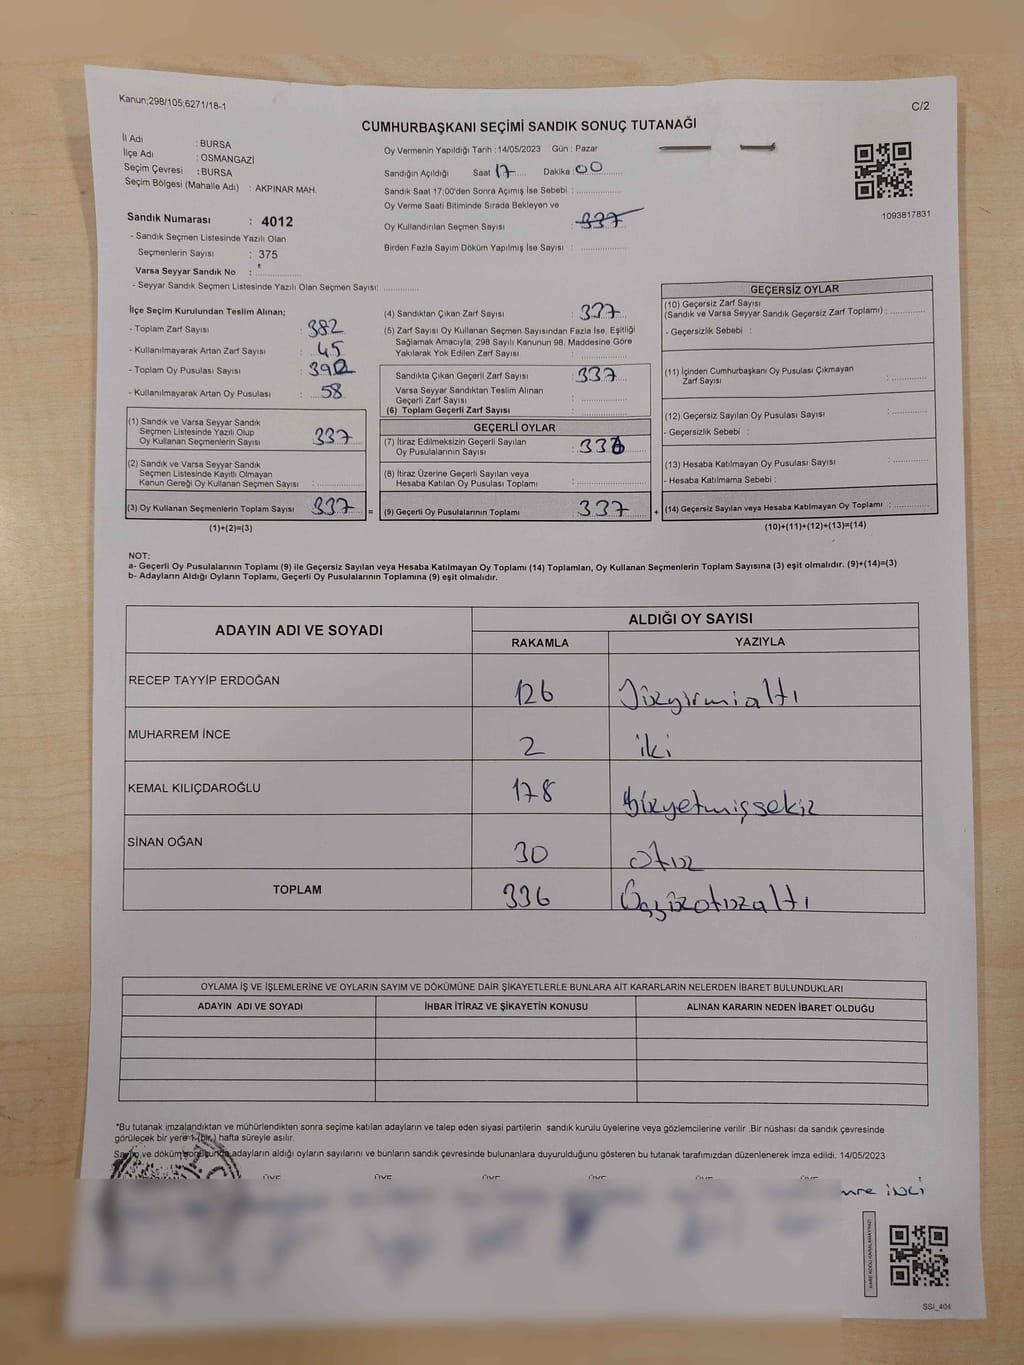 Kanun;298/105;6271/18-1
C/2
CUMHURBAŞKANI SEÇİMİ SANDIK SONUÇ TUTANAĞI
İl Adı : BURSA
İlçe Adı : OSMANGAZİ
Seçim Çevresi : BURSA
Seçim Bölgesi (Mahalle Adı) : AKPINAR MAH.
Sandık Numarası : 4012
- Sandık Seçmen Listesinde Yazılı Olan
Seçmenlerin Sayısı : 375
Varsa Seyyar Sandık No :
- Seyyar Sandık Seçmen Listesinde Yazılı Olan Seçmen Sayısı:
Oy Vermenin Yapıldığı Tarih : 14/05/2023 Gün : Pazar
Sandığın Açıldığı Saat 17 Dakika : 00
Sandık Saat 17:00'den Sonra Açımış İse Sebebi :
Oy Verme Saati Bitiminde Sırada Bekleyen ve
Oy Kullandırılan Seçmen Sayısı : 337
Birden Fazla Sayım Döküm Yapılmış İse Sayısı :
1093817831
İlçe Seçim Kurulundan Teslim Alınan;
- Toplam Zarf Sayısı : 382
- Kullanılmayarak Artan Zarf Sayısı : 45
- Toplam Oy Pusulası Sayısı : 392
- Kullanılmayarak Artan Oy Pusulası : 58
(1) Sandık ve Varsa Seyyar Sandık
Seçmen Listesinde Yazılı Olup
Oy Kullanan Seçmenlerin Sayısı : 337
(2) Sandık ve Varsa Seyyar Sandık
Seçmen Listesinde Kayıtlı Olmayan
Kanun Gereği Oy Kullanan Seçmen Sayısı :
(3) Oy Kullanan Seçmenlerin Toplam Sayısı : 337 =
(1)+(2)=(3)
(4) Sandıktan Çıkan Zarf Sayısı : 337
(5) Zarf Sayısı Oy Kullanan Seçmen Sayısından Fazla İse, Eşitliği
Sağlamak Amacıyla; 298 Sayılı Kanunun 98. Maddesine Göre
Yakılarak Yok Edilen Zarf Sayısı :
Sandıkta Çıkan Geçerli Zarf Sayısı : 337
Varsa Seyyar Sandıktan Teslim Alınan
Geçerli Zarf Sayısı :
(6) Toplam Geçerli Zarf Sayısı :
GEÇERLİ OYLAR
(7) İtiraz Edilmeksizin Geçerli Sayılan
Oy Pusulalarının Sayısı : 336
(8) İtiraz Üzerine Geçerli Sayılan veya
Hesaba Katılan Oy Pusulası Toplamı :
(9) Geçerli Oy Pusulalarının Toplamı : 337 +
GEÇERSİZ OYLAR
(10) Geçersiz Zarf Sayısı
(Sandık ve Varsa Seyyar Sandık Geçersiz Zarf Toplamı) :
- Geçersizlik Sebebi :
(11) İçinden Cumhurbaşkanı Oy Pusulası Çıkmayan
Zarf Sayısı :
(12) Geçersiz Sayılan Oy Pusulası Sayısı :
- Geçersizlik Sebebi :
(13) Hesaba Katılmayan Oy Pusulası Sayısı :
- Hesaba Katılmama Sebebi :
(14) Geçersiz Sayılan veya Hesaba Katılmayan Oy Toplamı :
(10)+(11)+(12)+(13)=(14)
NOT:
a- Geçerli Oy Pusulalarının Toplamı (9) ile Geçersiz Sayılan veya Hesaba Katılmayan Oy Toplamı (14) Toplamları, Oy Kullanan Seçmenlerin Toplam Sayısına (3) eşit olmalıdır. (9)+(14)=(3)
b- Adayların Aldığı Oyların Toplamı, Geçerli Oy Pusulalarının Toplamına (9) eşit olmalıdır.
ADAYIN ADI VE SOYADI ALDIĞI OY SAYISI
RAKAMLA YAZIYLA
RECEP TAYYİP ERDOĞAN 126 Yüzyirmialtı
MUHARREM İNCE 2 iki
KEMAL KILIÇDAROĞLU 178 yüzyetmişsekiz
SİNAN OĞAN 30 otuz
TOPLAM 336 Üçyüzotuzaltı
OYLAMA İŞ VE İŞLEMLERİNE VE OYLARIN SAYIM VE DÖKÜMÜNE DAİR ŞİKAYETLERLE BUNLARA AİT KARARLARIN NELERDEN İBARET BULUNDUKLARI
ADAYIN ADI VE SOYADI İHBAR İTİRAZ VE ŞİKAYETİN KONUSU ALINAN KARARIN NEDEN İBARET OLDUĞU
*Bu tutanak imzalandıktan ve mühürlendikten sonra seçime katılan adayların ve talep eden siyasi partilerin sandık kurulu üyelerine veya gözlemcilerine verilir .Bir nüshası da sandık çevresinde
görülecek bir yere 1 (bir,) hafta süreyle asılır.
Sayım ve döküm sonucunda, adayların aldığı oyların sayılarını ve bunların sandık çevresinde bulunanlara duyurulduğunu gösteren bu tutanak tarafımızdan düzenlenerek imza edildi. 14/05/2023
ÜYE ÜYE ÜYE ÜYE ÜYE ÜYE
İNCİ
SSİ_404